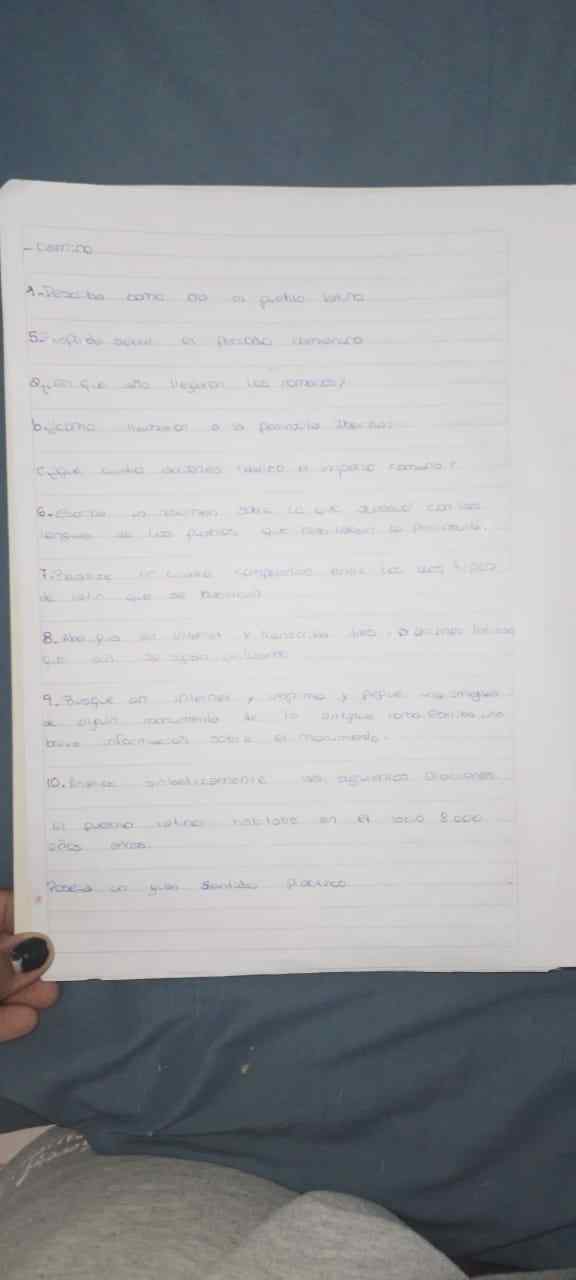 - Camino
4- Describa como era el pueblo latino
5- explicado sobre el período romanico
a¿en que año llegaron los romanos?
b¿como llamaron a la península Iberica?
c¿que cuatro abarco el imperio romano?
6- Escriba un resumen sobre lo que sucedió con las
lenguas de los pueblos que habitaban la península.
7. Realice un cuadro comparativo entre los dos tipos
de latín que se hablaban
8. en internet y transcriba latinas
que aún se sigan utilizando
9. Busque en internet, imprima y pegue una imagen
de algún monumento de la antigua roma. Escriba una
breve información sobre el monumento.
10. Analice sintacticamente las siguientes oraciones
El pueblo latino habitaba en el lacio 3.000
años atras.
Poseía un gran sentido práctico